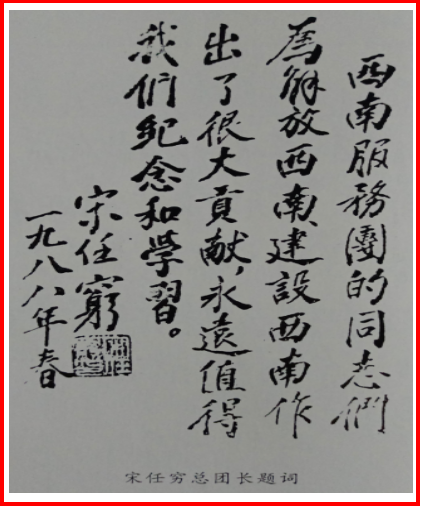 西南服務團的同志們
為解放西南、建設西南作
出了很大貢献，永遠值得
我们纪念和学習。
宋任窮
一九八八年春
宋任穷总团长题词